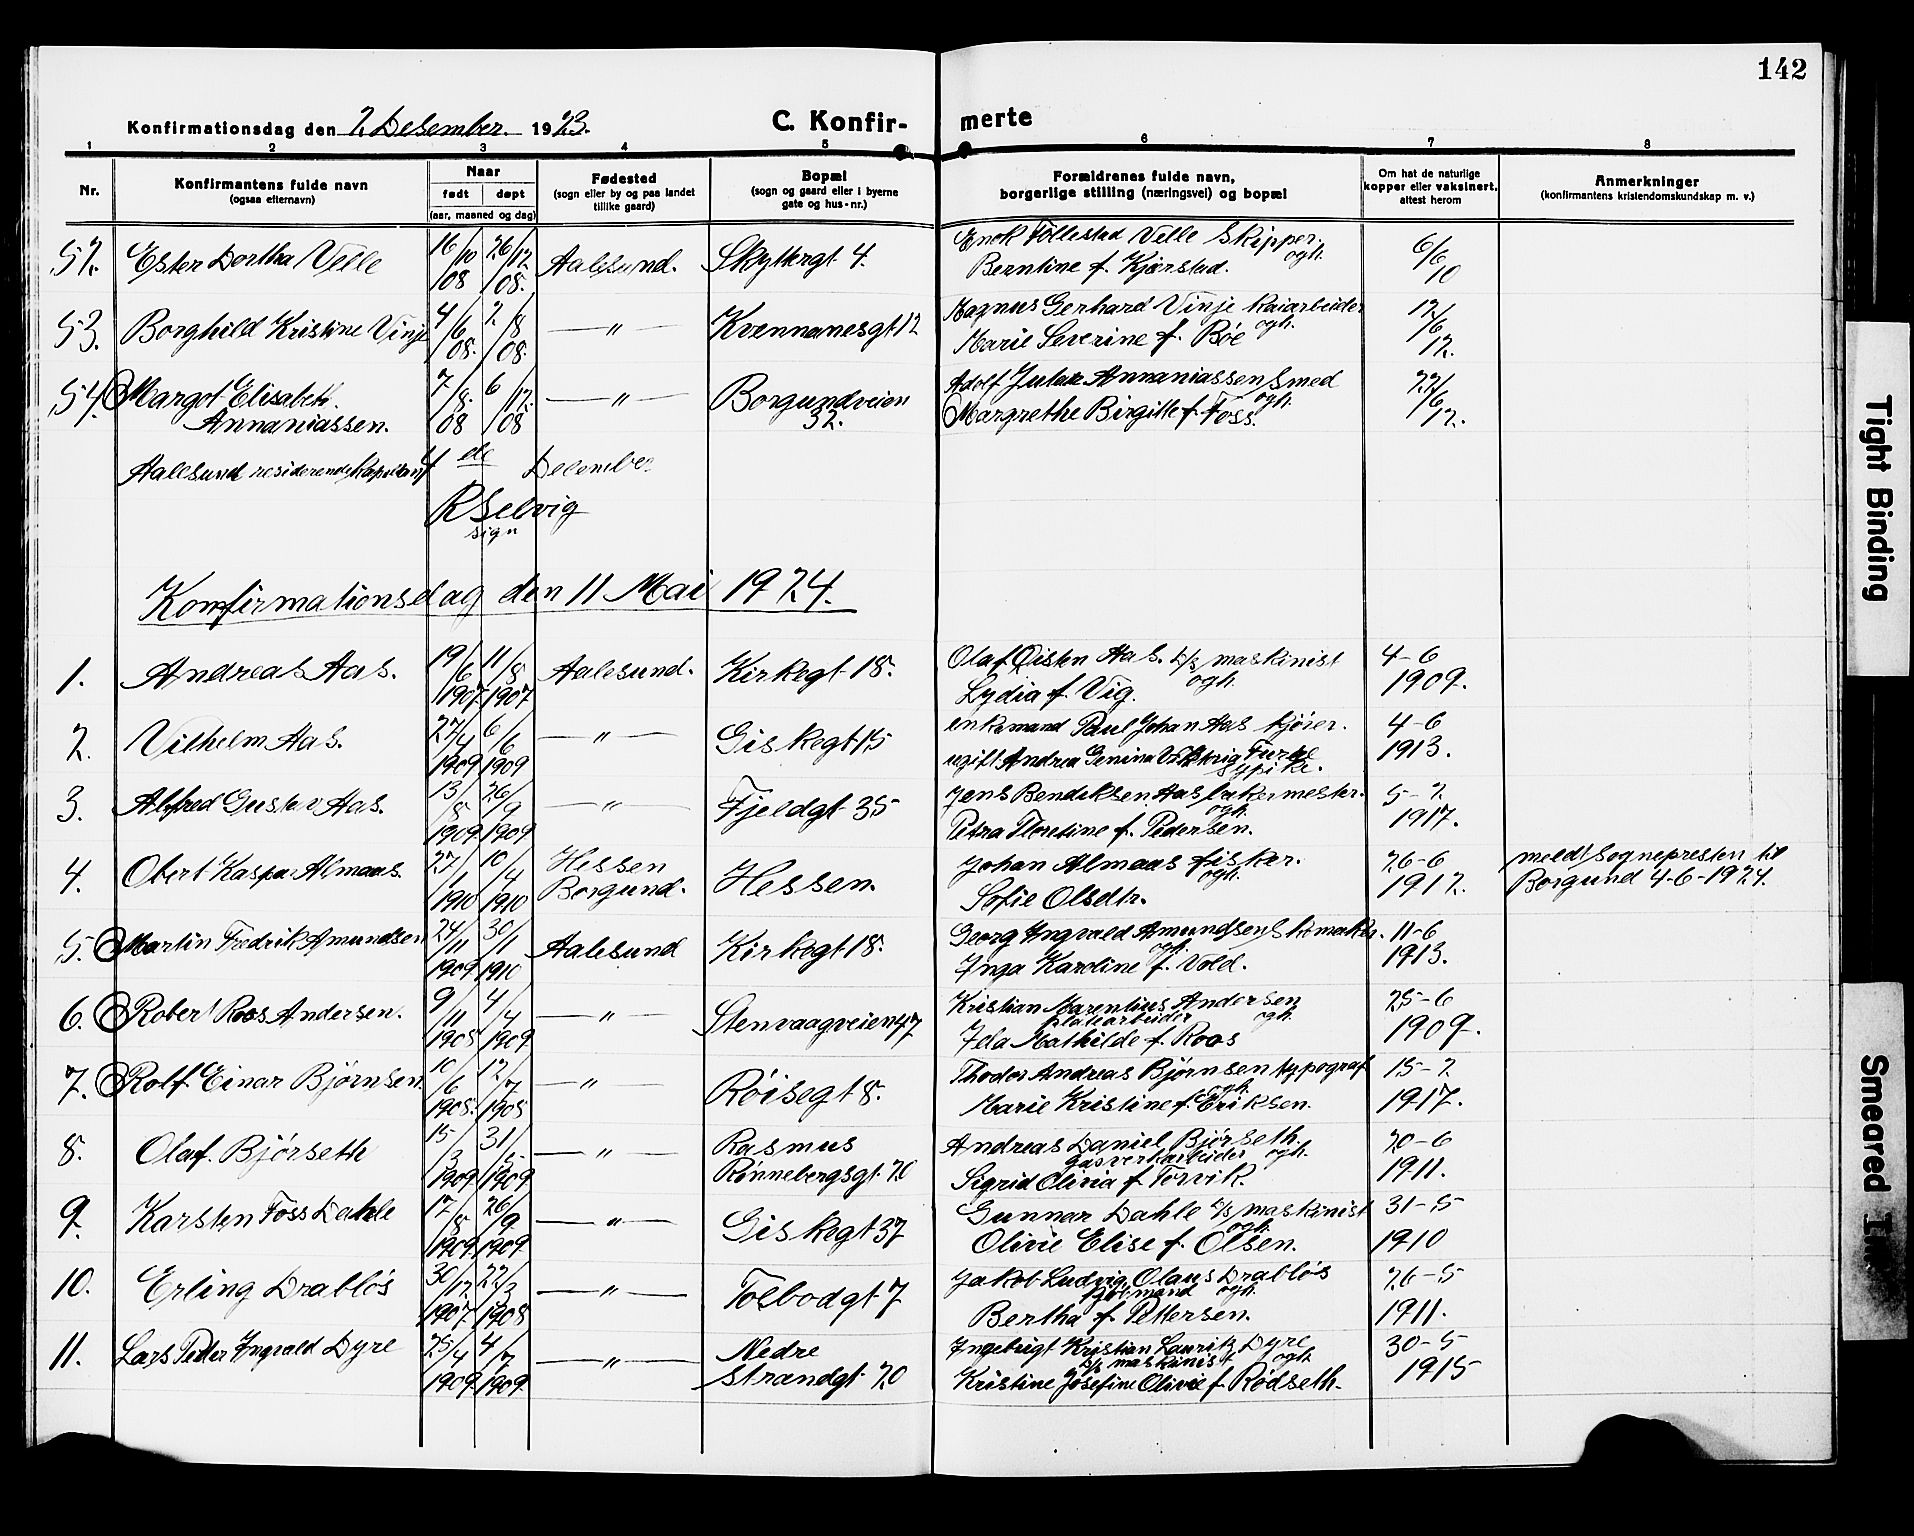 142
Konfirmationsdag den 2 Desember 1923.
C. Konfirmerte
1 2 3 4 5 6 7 8
Nr.
Konfirmantens fulde navn
(ogsaa efternavn)
Naar
født døpt
(aar, maaned og dag)
Fødested
(sogn eller by og paa landet
tillike gaard)
Bopæl
(sogn og gaard eller i byerne
gate og hus-nr.)
Forældrenes fulde navn,
borgerlige stilling (næringsvei) og bopæl
Om hat de naturlige
kopper eller vaksinert,
attest herom
Anmerkninger
(konfirmantens kristendomskundskap m. v.)
52. Ester Dortha Velle 16/10 08 26/12 08. Aalesund. Skyttergt 4. Enok Follestad Velle Skipper. ogh. 6/6 10
Berntine f. Kjørstad.
53. Borghild Kristine Vinje 4/6 08. 2/8 08. —"— Kvennanesgt 12 Magnus Gerhard Vinje kaiarbeider ogh. 12/6 12.
Marie Severine f. Bøe
54. Margot Elisabeth 7/8. 08 6/12. 08 —"— Borgundveien Adolf Julax Annaniassen Smed ogh. 22/6 12.
Annaniassen. 32. Margrethe Birgitte f. Foss.
Aalesund residerende Kapellani de Desember
R Selvig
sign
Konfirmationsdag den 11 Mai 1924.
1. Andreas Aas. 19/6 1907 11/8 1907 Aalesund. Kirkegt 18. Olaf Øisten Aas. D/s maskinist ogh. 4-6
Lydia f. Vig. 1909.
2. Vilhelm Aas. 27/4 1909 6/6 1909 —"— Giskegt 15 enkemand Paul Johan Aas kjører. 4-6
ugift Andrea Genina Vikstrig Furbe 1913.
sypike.
3. Alfred Gustav Aas. 13/8 1909 26/9 1909 —"— Fjeldgt 35 Jens Bendiksen Aas bakermester. ogh. 5-2
Petra Florentine f. Pedersen. 1917.
4. Obert Kaspar Almaas. 27/1 1910 10/4 1910 Hessen Hessen. Johan Almaas fisker. ogh. 26-6 meldt Sognepresten til
Borgund. Sofie Olsdtr. 1912. Borgund 4-6-1924.
5. Martin Fredrik Amundsen 24/11 1909 30/1 1910 Aalesund Kirkegt 18. Georg Ingvald Amundsen Skomaker. ogh. 11-6
Inga Karoline f. Vold. 1913.
6. Robert Roos Andersen. 9/11 1908 4/4 1909 —"— Stenvaagveien 47 Kristian Marentius Andersen 25-6
platearbeider ogh.
Ida Mathilde f. Roos 1909.
7. Rolf Einar Bjørnsen 10/6 1908. 12/7 1908 —"— Røisegt 8. Thodor Andreas Bjørnsen typograf ogh. 15-2
Marie Kristine f. Eriksen. 1917.
8. Olaf Bjørseth 15/3 1909 31/5 1909 —"— Rasmus Andreas Daniel Bjørseth. 20-6
gasverkarbeider ogh.
Rønnebergsgt 20 Sigrid Olivia f. Torvik. 1911.
9. Karsten Foss Dahle 12/8 1909 26/9 1909 —"— Giskegt 37 Gunnar Dahle D/s maskinist ogh. 31-5
Olivie Elise f. Olsen. 1910
10. Erling Drabløs 30/12 1907 22/3 1908 —"— Tolbodgt 7 Jakob Ludvig Olaus Drabløs 26-5
sjømand ogh.
Bertha f. Pettersen. 1911.
11. Lars Peder Ingvald Dyre 25/4 1909 4/7 1909 —"— Nedre Ingebrigt Kristian Lauritz Dyre 30-5
D/s maskinist ogh.
Strandgt 20 Kristine Josefine Olivie f. Rødseth. 1915
Tight Binding
Smeared Ink